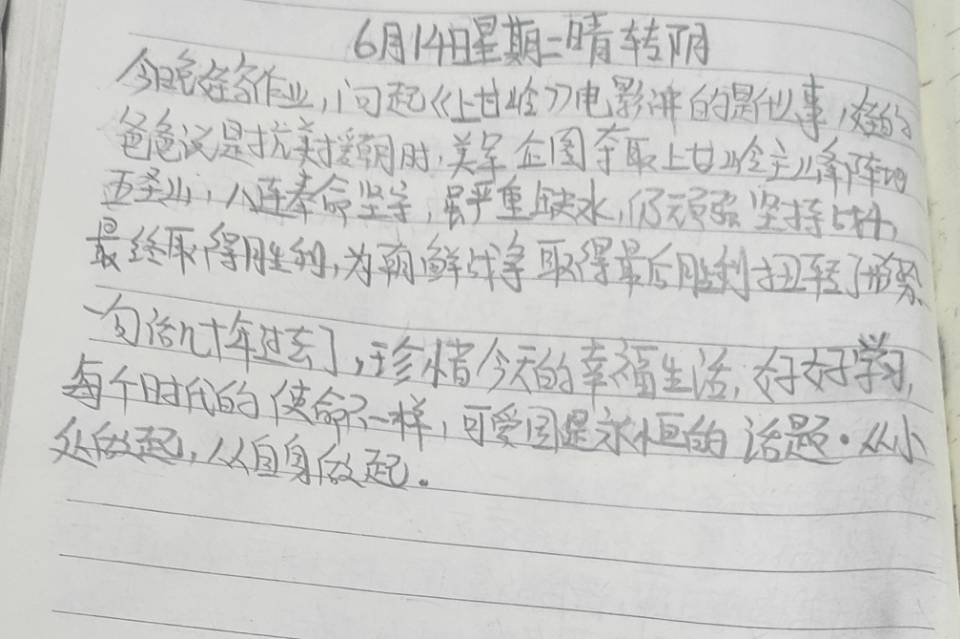 6月14日星期二晴转阴
今日晚在写作业，问起《上甘岭》电影讲的是什么事，她的
爸爸说是抗美援朝时，美军企图夺取上甘岭主峰阵地
五圣山，八连奉命坚守，虽严重缺水，仍顽强坚持战斗，
最终取得胜利，为朝鲜战争取得最后胜利扭转了形势。
一句话几十年过去了，珍惜今天的幸福生活，好好学习，
每个时代的使命不一样，可爱国是永恒的话题。从小
处做起，从自身做起。